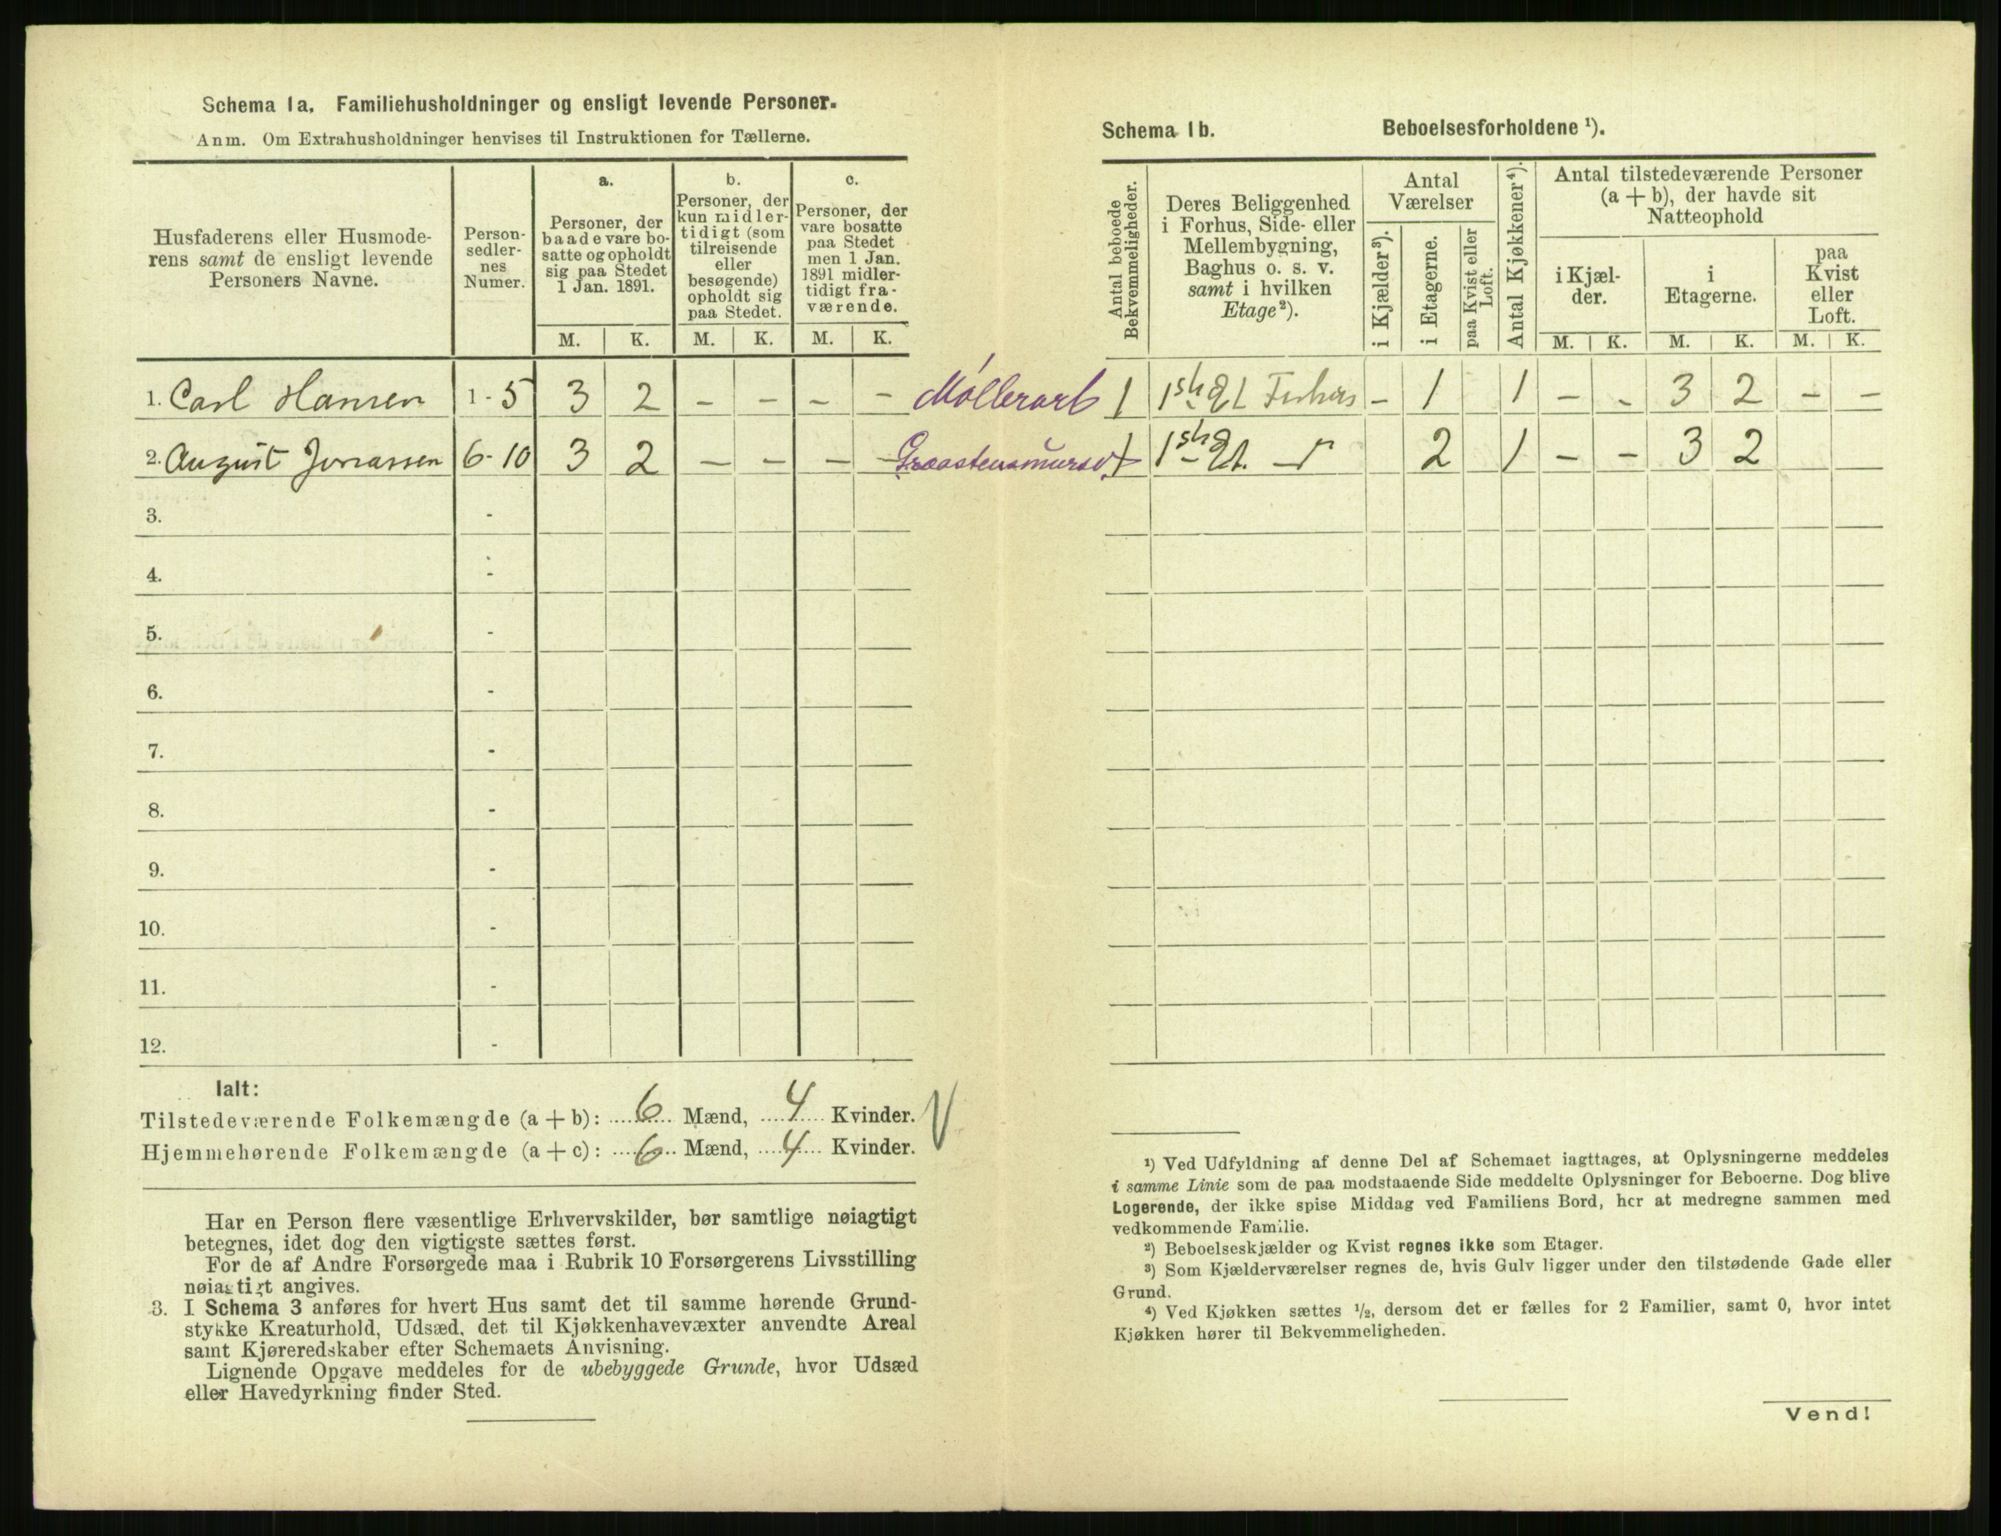 Schema 1a. Familiehusholdninger og ensligt levende Personer.
Anm. Om Extrahusholdninger henvises til Instruktionen for Tællerne.
Husfaderens eller Husmode-
rens samt de ensligt levende
Personers Navne.
Person-
sedler-
nes
Numer.
a.
Personer, der
baade vare bo-
satte og opholdt
sig paa Stedet
1 Jan. 1891.
b.
Personer, der
kun midler-
tidigt (som
tilreisende
eller
besøgende)
opholdt sig
paa Stedet.
c.
Personer, der
vare bosatte
paa Stedet
men 1 Jan.
1891 midler-
tidigt fra-
værende.
M. K. M. K. M. K.
1. Carl Hansen 1-5 3 2 - - - - Møllerarb
2. August Jonassen 6-10 3 2 - - - - Graastensmurer
3. -
4. -
5. -
6. -
7. -
8. -
9. -
10. -
11. -
12. -
Ialt:
Tilstedeværende Folkemængde (a + b): 6 Mænd, 4 Kvinder.
Hjemmehørende Folkemængde (a + c): 6 Mænd, 4 Kvinder.
Har en Person flere væsentlige Erhvervskilder, bør samtlige nøiagtigt
betegnes, idet dog den vigtigste sættes først.
For de af Andre Forsørgede maa i Rubrik 10 Forsørgerens Livsstilling
nøiagtigt angives.
3. I Schema 3 anføres for hvert Hus samt det til samme hørende Grund-
stykke Kreaturhold, Udsæd, det til Kjøkkenhavevæxter anvendte Areal
samt Kjøreredskaber efter Schemaets Anvisning.
Lignende Opgave meddeles for de ubebyggede Grunde, hvor Udsæd
eller Havedyrkning finder Sted.
Schema 1b. Beboelsesforholdene ¹).
Antal beboede
Bekvemmeligheder.
Deres Beliggenhed
i Forhus, Side- eller
Mellembygning,
Baghus o. s. v.
samt i hvilken
Etage²).
Antal
Værelser
i Kjælder³).
i Etagerne.
paa Kvist eller
Loft.
Antal Kjøkkener⁴).
Antal tilstedeværende Personer
(a + b), der havde sit
Natteophold
i Kjæl-
der.
i
Etagerne.
paa
Kvist
eller
Loft.
M. K. M. K. M. K.
1 1ste Et - 1 1 - - 3 2 - -
1 1ste Et. 2 1 - - 3 2
¹) Ved Udfyldning af denne Del af Schemaet iagttages, at Oplysningerne meddeles
i samme Linie som de paa modstaaende Side meddelte Oplysninger for Beboerne. Dog blive
Logerende, der ikke spise Middag ved Familiens Bord, her at medregne sammen med
vedkommende Familie.
²) Beboelseskjælder og Kvist regnes ikke som Etager.
³) Som Kjælderværelser regnes de, hvis Gulv ligger under den tilstødende Gade eller
Grund.
⁴) Ved Kjøkken sættes ½, dersom det er fælles for 2 Familier, samt 0, hvor intet
Kjøkken hører til Bekvemmeligheden.
Vend!